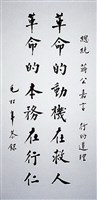 總統 蔣公嘉言 行的道理
革命的動機在救人
革命的本務在行仁